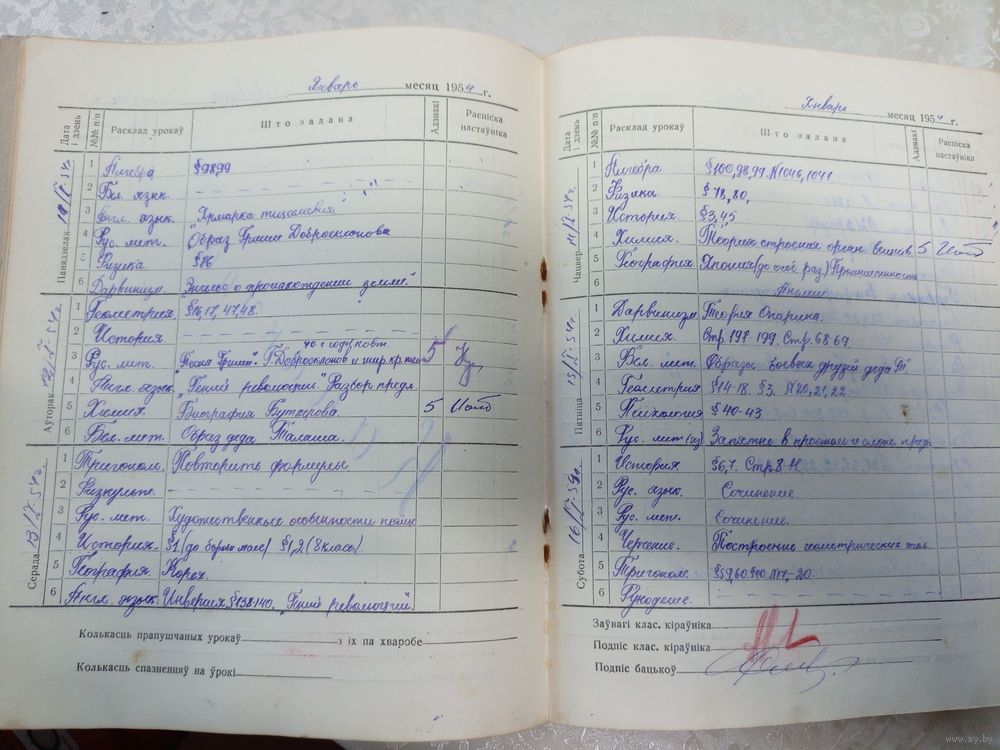 Январь месяц 1954 г.
Дата і дзень №№ п/п Расклад урокаў Што задана Адзнакі Распіска настаўніка
Панядзелак
1 Алгебра §98,99
2 Бел. язык
3 Англ. язык. "Ярмарка тщеславия"
4 Рус. лит. Образ Гриши Добросклонова
5 Физика. §76
6 Дарвинизм. Энгельс о происхождении земли.
Аўторак
1 Геометрия. §16,17, 47,48.
2 История.
3 Рус. лит. "Песня Гриши". Г. Добросклонов 5
4 Англ. язык. "Гений революции". Разбор предл.
5 Химия. Биография Бутлерова. 5
6 Бел. лит. Образ деда Талаша.
Серада 13/I-54г.
1 Тригоном. Повторить формулы
2 Физкульт.
3 Рус. лит. Художественные особенности поэмы
4 История. §1 §1,2 (8 класс)
5 География. Корея.
6 Англ. язык. Инверсия §138-140. "Гений революции".
Колькасць прапушчаных урокаў з іх па хваробе
Колькасць спазненняў на ўрокі
Январь месяц 1954 г.
Дата і дзень №№ п/п Расклад урокаў Што задана Адзнакі Распіска настаўніка
Чацвер 14/I-54г.
1 Алгебра §100, 98, 99. №1046, 1041
2 Физика. §78,80,
3 История. §3,4,5
4 Химия. Теория строения орган. веществ 5
5 География. Япония Промышленность
6 Японии
Пятніца 15/I-54г.
1 Дарвинизм. Теория Опарина.
2 Химия. Стр. 197-199. Стр. 68 69
3 Бел. лит. Образы боевых друзей деда Т
4 Геометрия §14-18. §3. №20,21,22.
5 Психология §40-43.
6 Рус. лит Запятые в простом и слож. предл.
Субота 16/I-54г.
1 История §6,7. Стр. 8-11.
2 Рус. язык. Сочинение
3 Рус. лит. Сочинение.
4 Черчение. Построение геометрических тел.
5 Тригоном.
6 Рукоделие.
Заўвагі клас. кіраўніка
Подпіс клас. кіраўніка
Подпіс бацькоў
www.ay.by